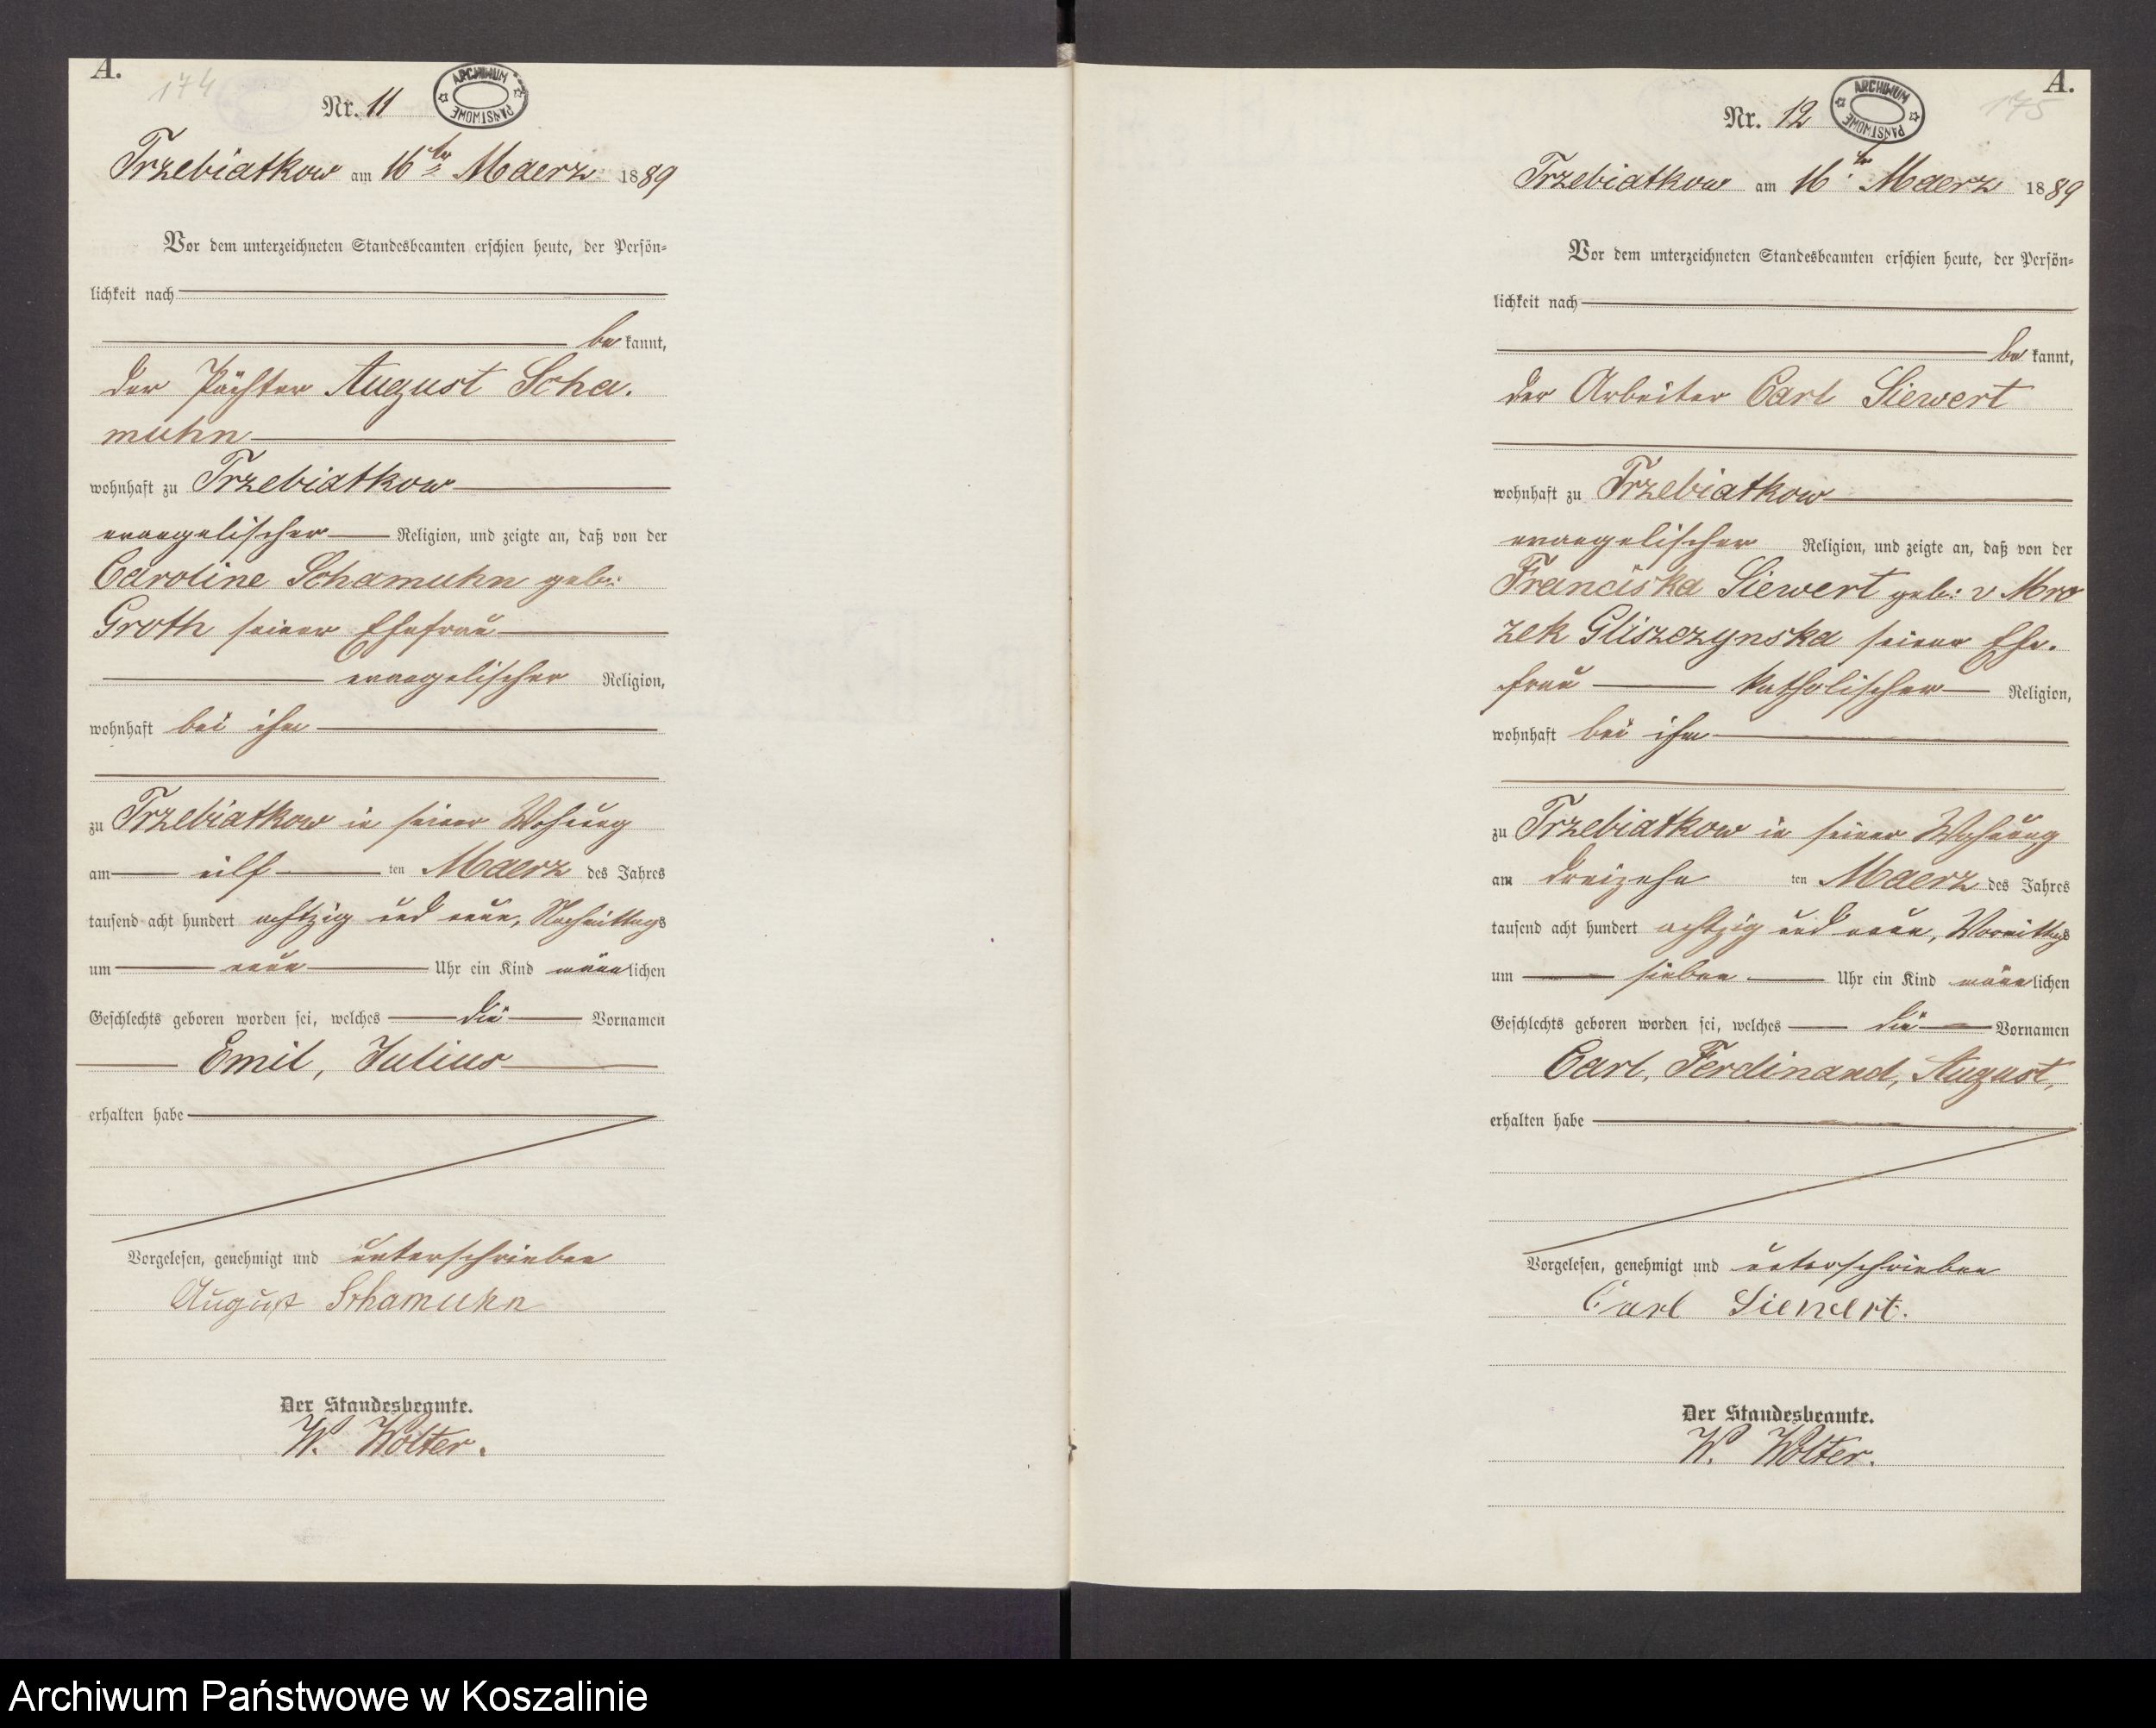 A.
174
Nr. 11
ARCHIWUM PAŃSTWOWE
Trzebiatkow am 16ten Maerz 1889
Vor dem unterzeichneten Standesbeamten erschien heute, der Persön-
lichkeit nach
be kannt,
der Pächter August Scha.
muhn
wohnhaft zu Trzebiatkow
evangelischer Religion, und zeigte an, daß von der
Caroline Schamuhn geb:
Groth seiner Ehefrau
evangelischer Religion,
wohnhaft bei ihm
zu Trzebiatkow in seiner Wohnung
am eilf ten Maerz des Jahres
tausend acht hundert achtzig und neun, Nachmittags
um neun Uhr ein Kind männlichen
Geschlechts geboren worden sei, welches die Vornamen
Emil, Julius
erhalten habe
Vorgelesen, genehmigt und unterschrieben
August Schamuhn
Der Standesbeamte.
W. Wolter.
A.
175
Nr. 12
ARCHIWUM PAŃSTWOWE
Trzebiatkow am 16ten Maerz 1889
Vor dem unterzeichneten Standesbeamten erschien heute, der Persön-
lichkeit nach
be kannt,
der Arbeiter Carl Siewert
wohnhaft zu Trzebiatkow
evangelischer Religion, und zeigte an, daß von der
Franciska Siewert geb: v Mro
zek Gliszczynska seiner Ehe.
frau katholischer Religion,
wohnhaft bei ihm
zu Trzebiatkow in seiner Wohnung
am dreizehn ten Maerz des Jahres
tausend acht hundert achtzig und neun, Vormittags
um sieben Uhr ein Kind männlichen
Geschlechts geboren worden sei, welches die Vornamen
Carl, Ferdinand, August,
erhalten habe
Vorgelesen, genehmigt und unterschrieben
Carl Siewert.
Der Standesbeamte.
W. Wolter.
Archiwum Państwowe w Koszalinie